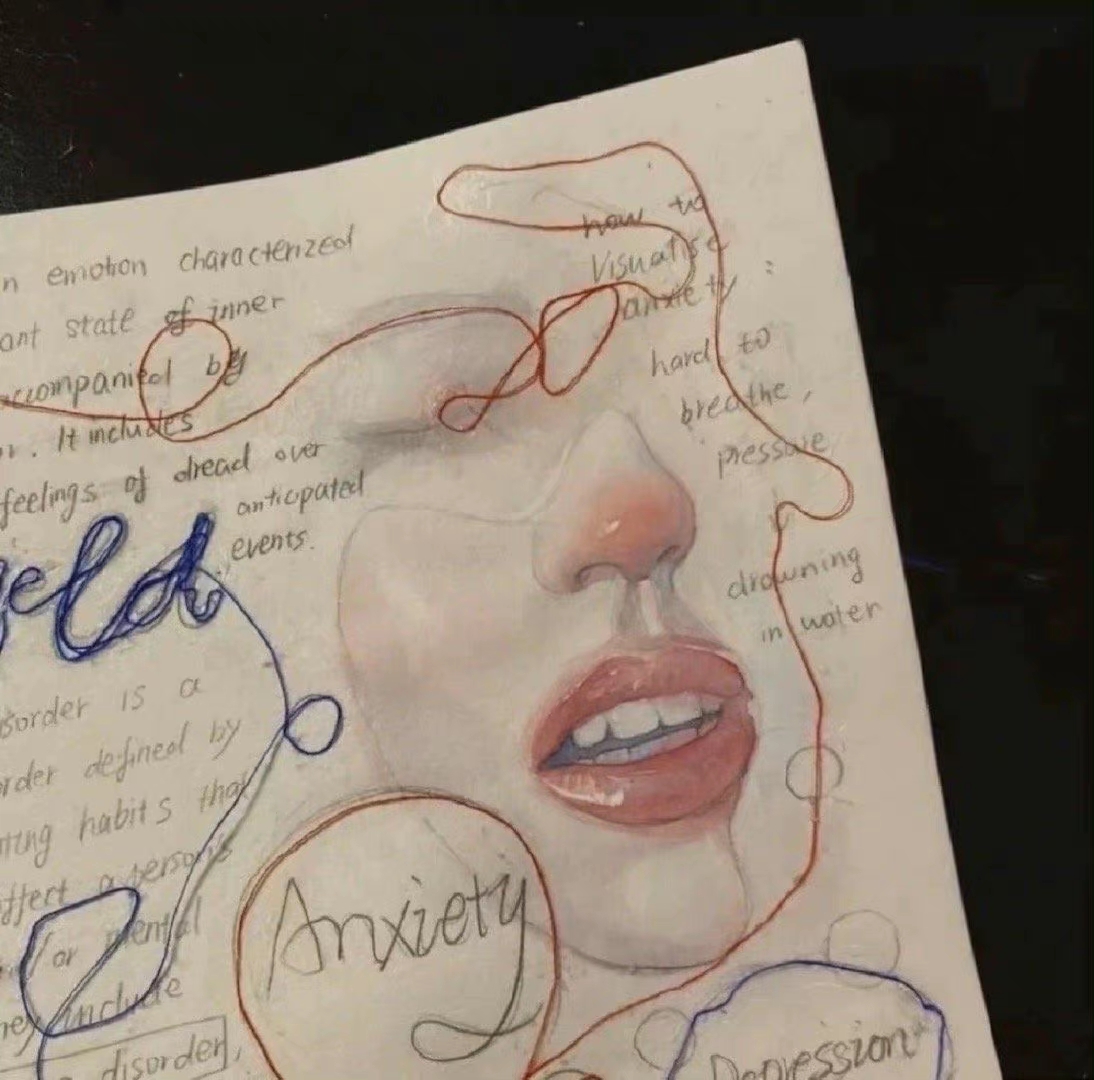 n emotion characterized
ant state of inner
accompanied by
r. It includes
feelings of dread over
anticipated
events.
how to
visualise
anxiety :
hard to
breathe,
pressure
drowning
in water
eld
sorder is a
rder defined by
ting habits that
affect a person's
/or mental
hey include
disorder,
Anxiety
Depression